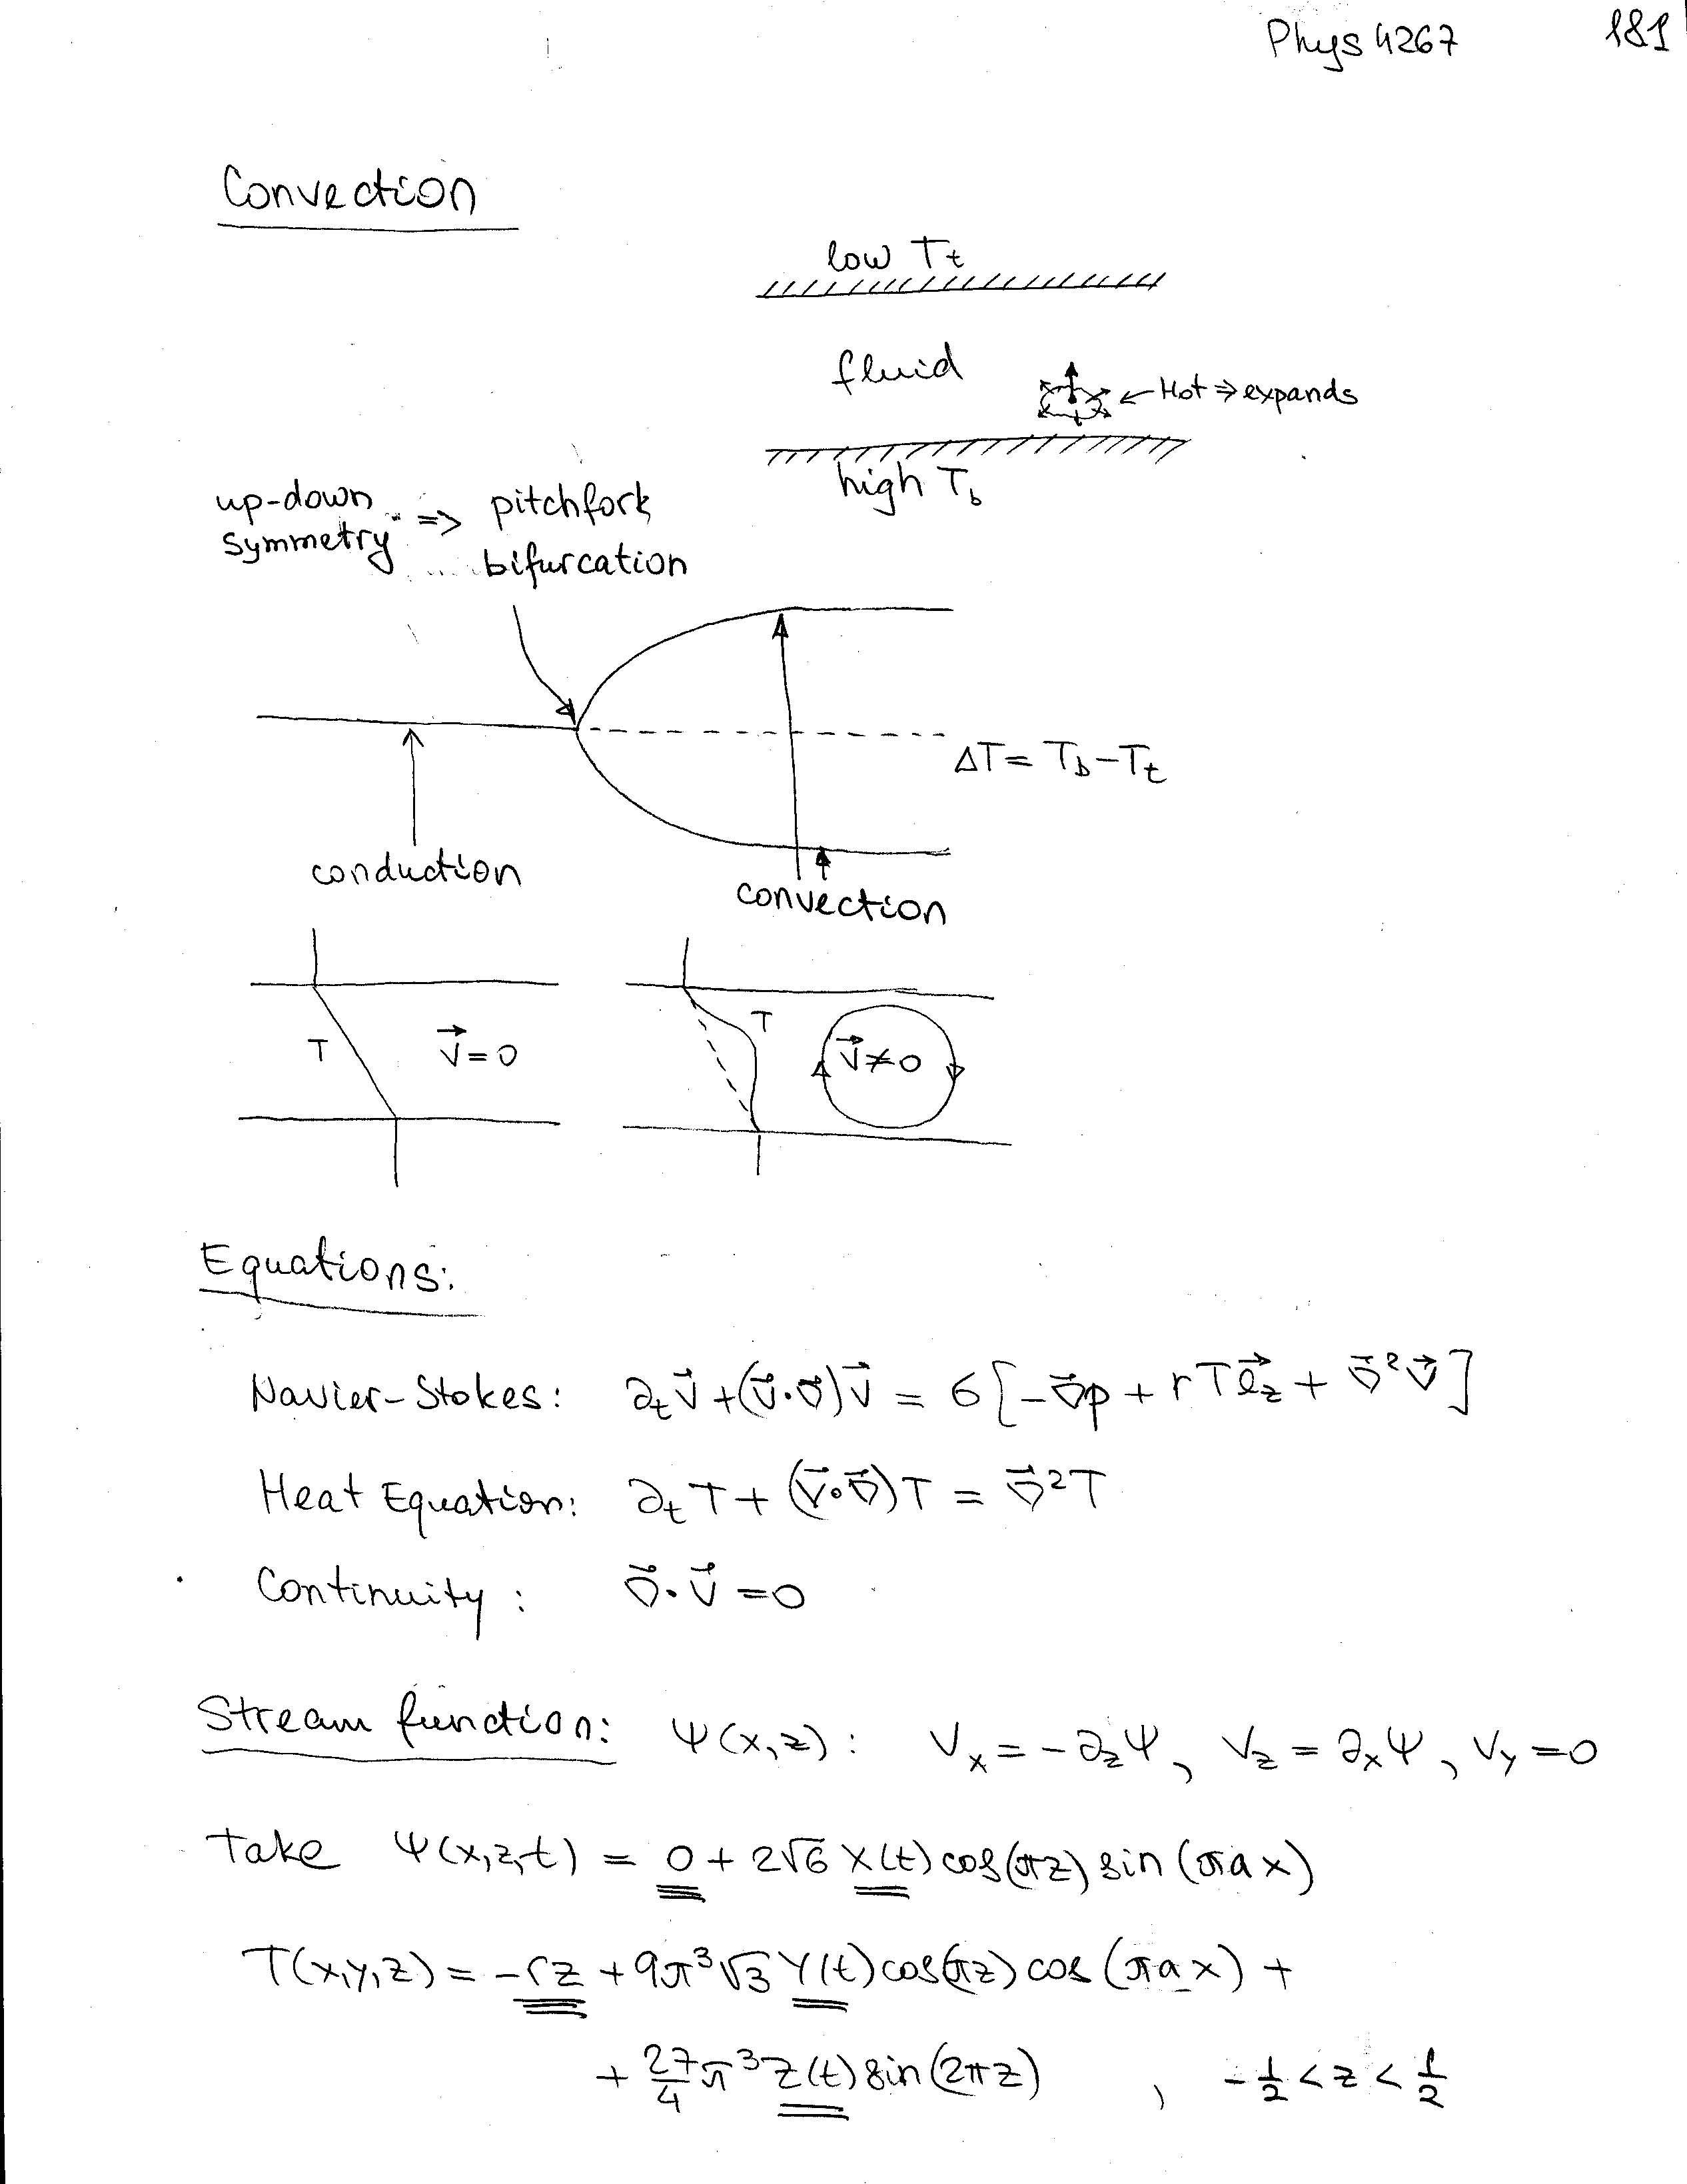 Phys 4267 181
Convection
low T_t
fluid
← Hot ⇒ expands
high T_b
up-down symmetry => pitchfork bifurcation
ΔT = T_b - T_t
conduction
convection
T \vec{v} = 0
T \vec{v} ≠ 0
Equations:
Navier-Stokes: ∂_t \vec{v} + (\vec{v}·\vec{∇})\vec{v} = σ[-\vec{∇}p + rT\vec{e}_z + \vec{∇}²\vec{v}]
Heat Equation: ∂_t T + (\vec{v}·\vec{∇})T = \vec{∇}²T
Continuity: \vec{∇}·\vec{v} = 0
Stream function: Ψ(x,z): V_x = -∂_zΨ, V_z = ∂_xΨ, V_y = 0
Take Ψ(x,z,t) = 0 + 2√6 X(t) cos(πz) sin(πax)
T(x,y,z) = -rz + 9π³√3 Y(t) cos(πz) cos(πax) +
+ 27/4 π³ Z(t) sin(2πz) , -1/2 < z < 1/2